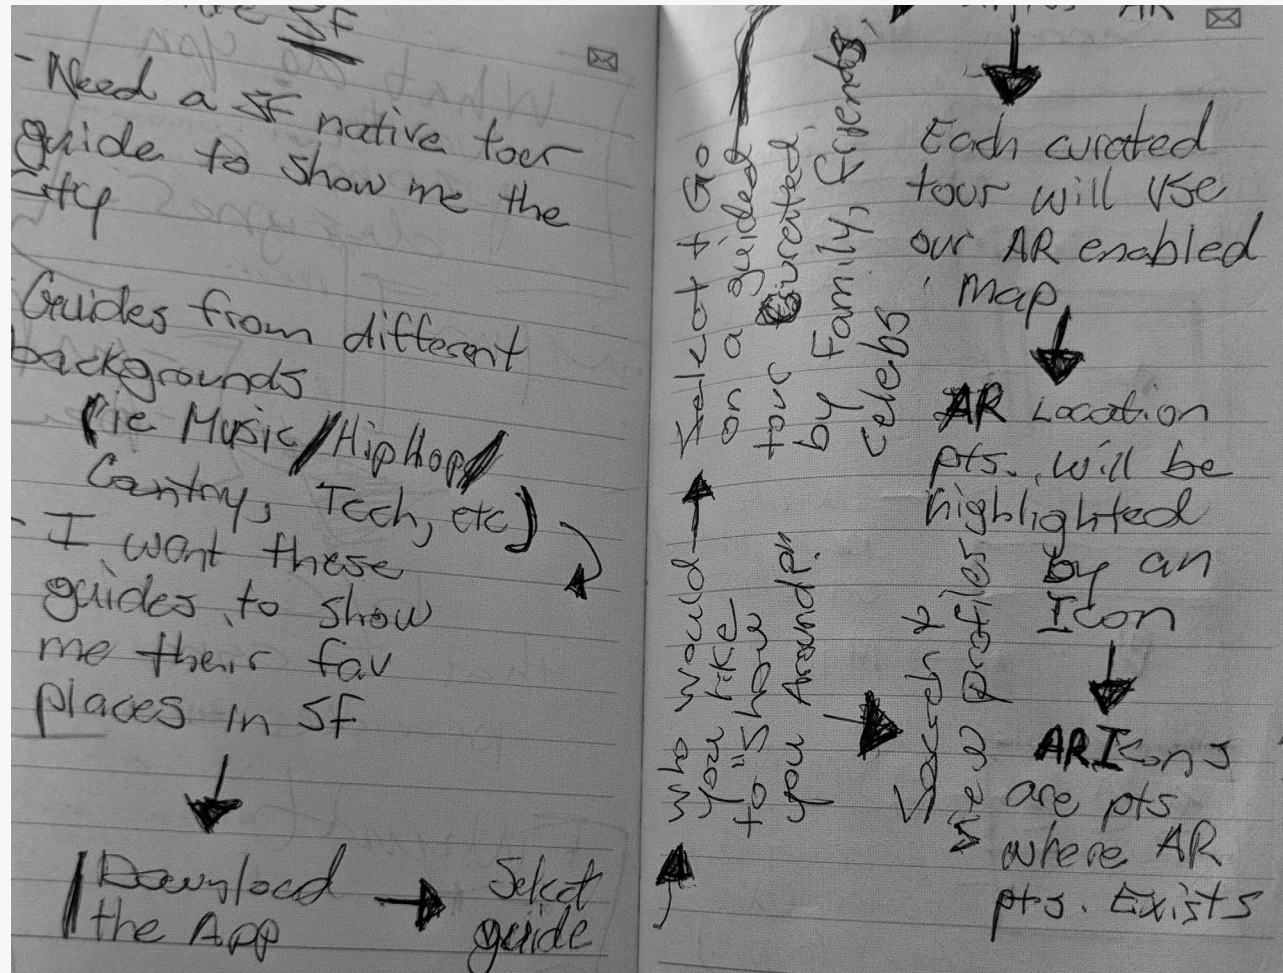 SF
- Need a SF native tour
guide to show me the
city
Guides from different
backgrounds
(ie Music/HipHop/
Country, Tech, etc)
- I want these
guides to show
me their fav
places in SF
Download
the App
Select
guide
who would
you like
to "show
you Around?"
Select & Go
on a guided
tour curated
by Family, friends,
celebs
Search &
view profiles
AR
Each curated
tour will use
our AR enabled
map
AR Location
pts. will be
highlighted
by an
Icon
AR Icons
are pts
where AR
pts. Exists